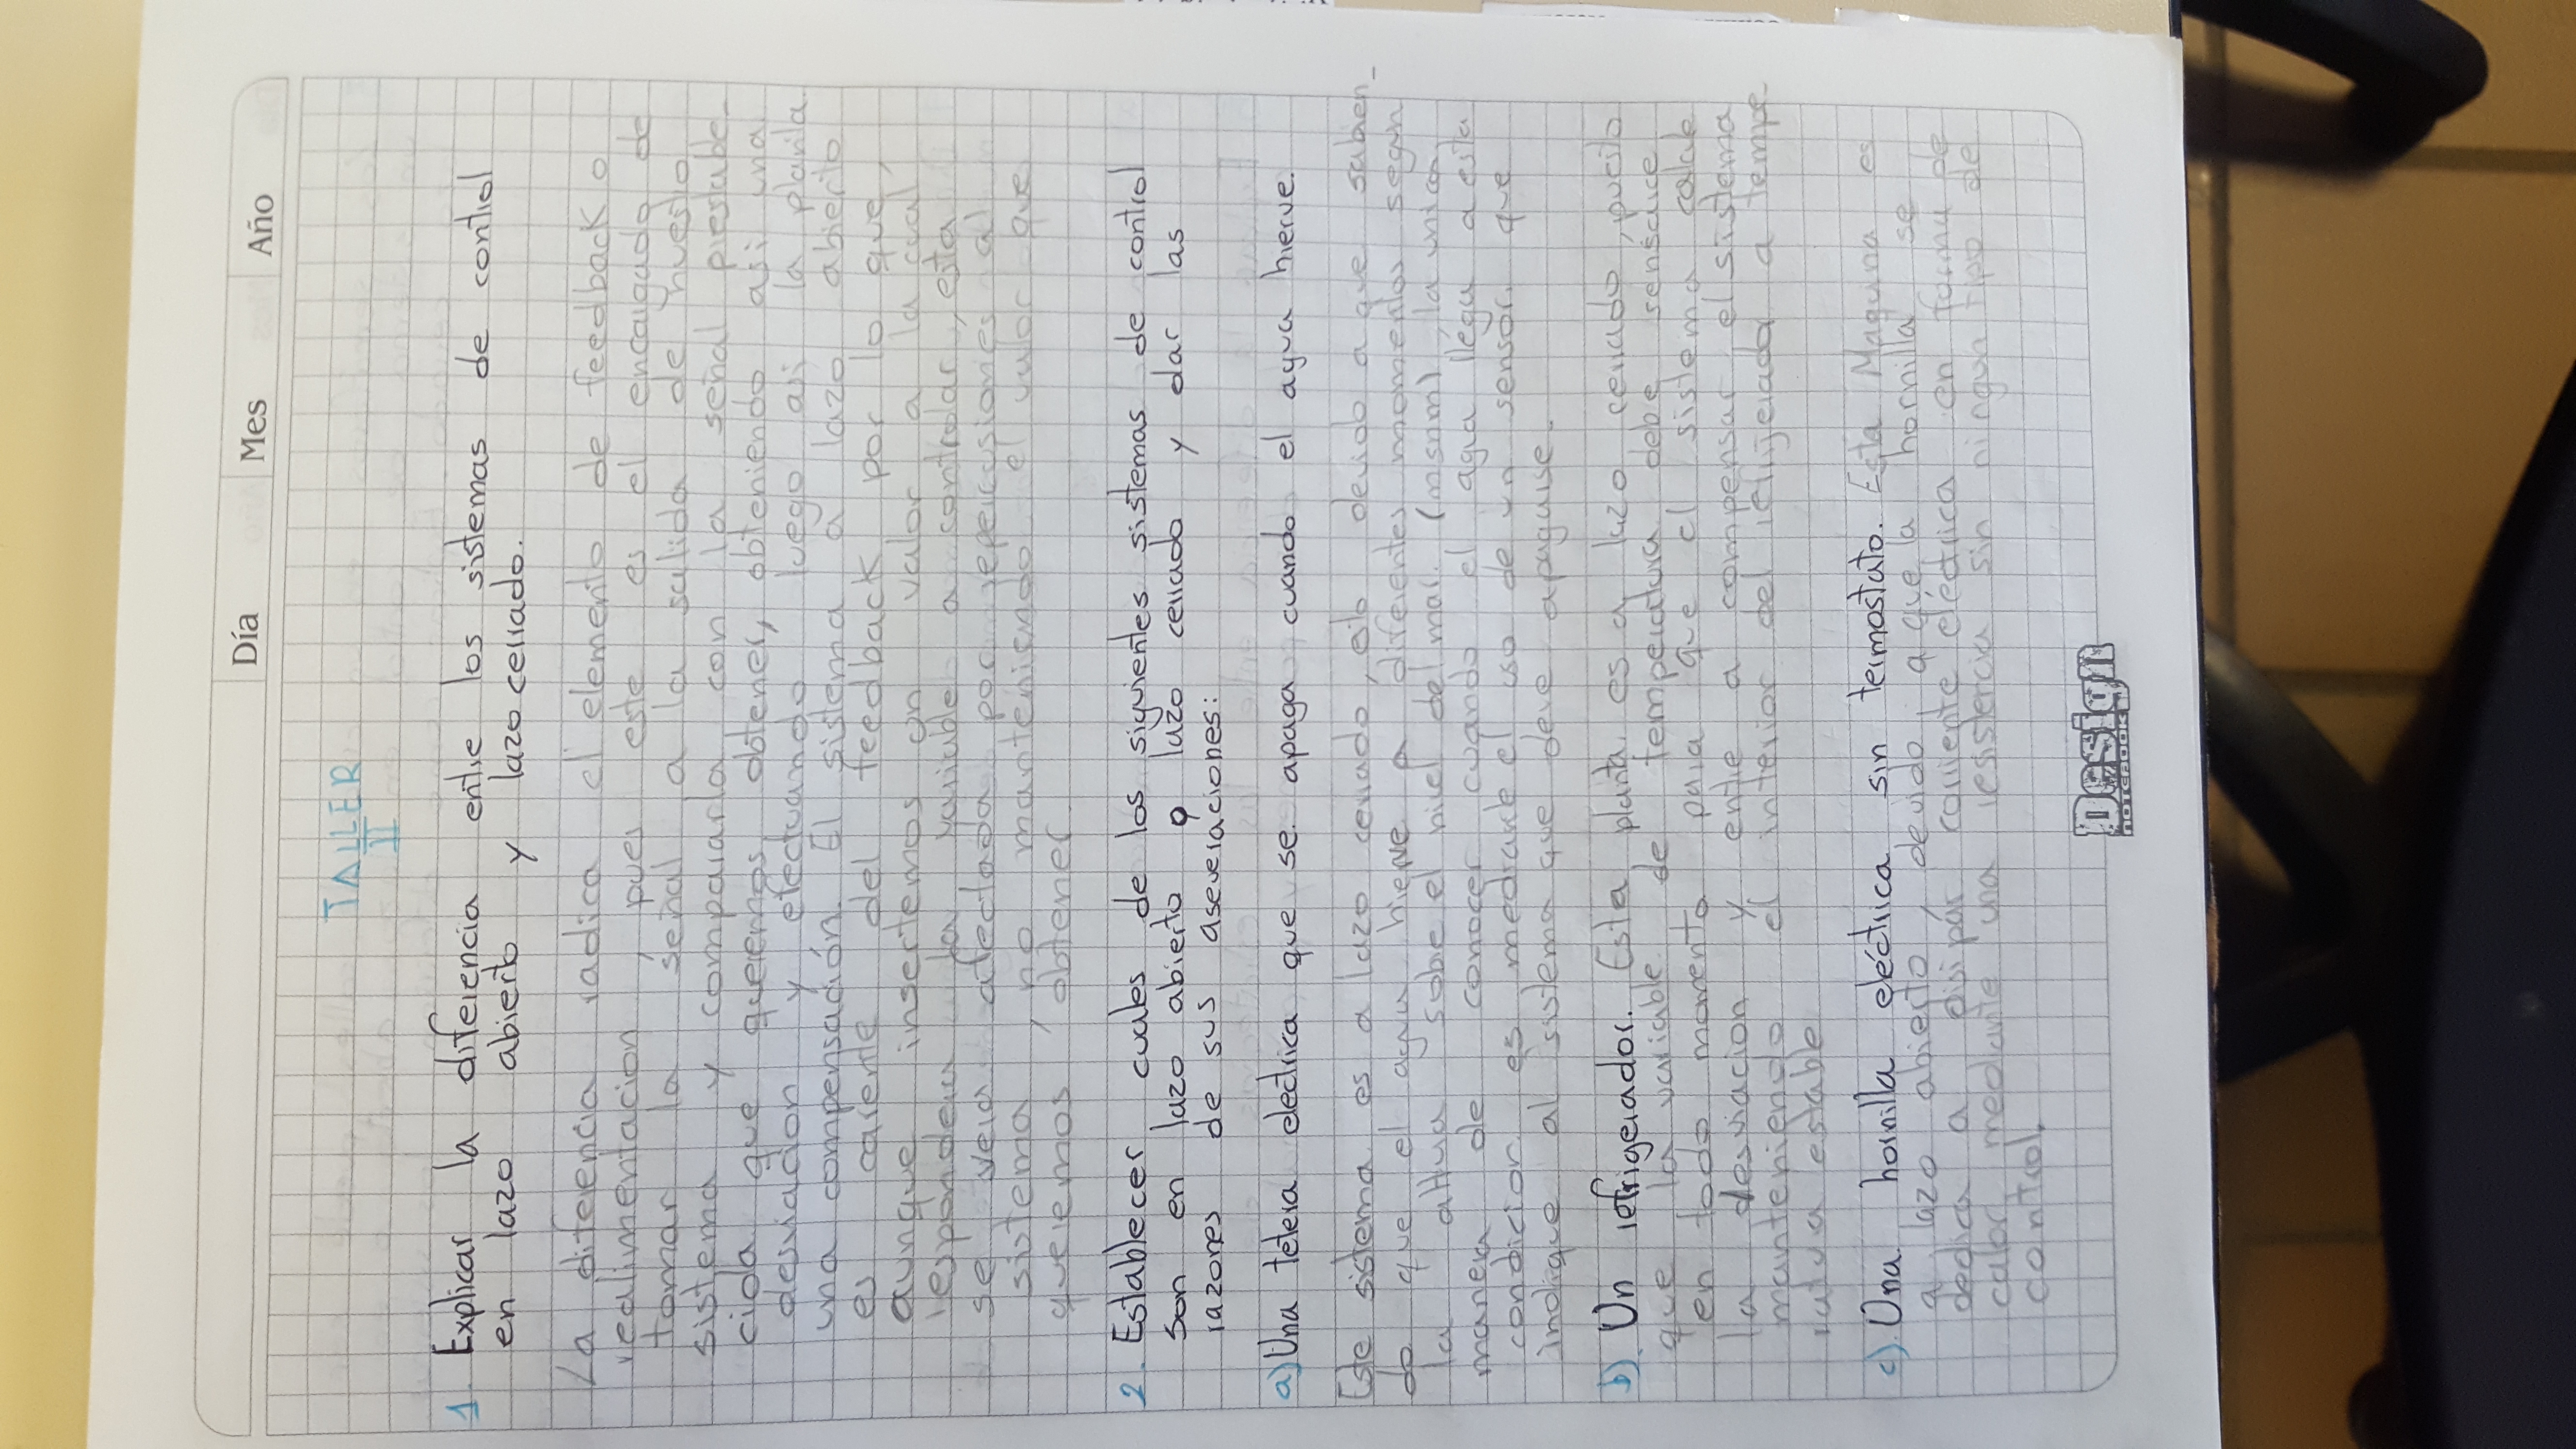 Día Mes Año
TALLER
II
1. Explicar la diferencia entre los sistemas de control
en lazo abierto y lazo cerrado.
La diferencia radica el elemento de feedback o
realimentacion, pues este es el encargado de
tomar la señal a la salida de nuestro
sistema y compararla con la señal prestable-
cida que queremos obtener, obteniendo asi una
desviacion y efectuando luego asi la planta
una compensación. El sistema a lazo abierto
es carente del feedback por lo que,
aunque insertemos un valor a la cual
respondera la variable a controlar, esta
se vera afectada por repercusiones al
sistema, no manteniendo el valor que
queremos obtener
2. Establecer cuales de los siguientes sistemas de control
son en lazo abierto o lazo cerrado y dar las
razones de sus aseveraciones:
a) Una tetera electrica que se apaga cuando el agua hierve.
Este sistema es a lazo cerrado, esto devido a que sabien-
do que el agua hierve a diferentes momentos segun
la altura sobre el nivel del mar. (msnm), la unica
manera de conocer cuando el agua llega a esta
condicion es mediante el uso de un sensor que
indique al sistema que deve apagarse.
b) Un refrigerador. Esta planta es a lazo cerrado, puesto
que la variable de temperatura debe sensarce
en todo momento para que el sistema calcule
la desviacion y entre a compensar el sistema
manteniendo el interior del refrijerador a tempe-
ratura estable
c) Una hornilla eléctrica sin termostato. Esta Maquina es
a lazo abierto, devido a que la hornilla se
dedica a disipar corriente eléctrica en forma de
calor mediante una resistencia sin ningun tipo de
control.
Design
NOTEBOOK